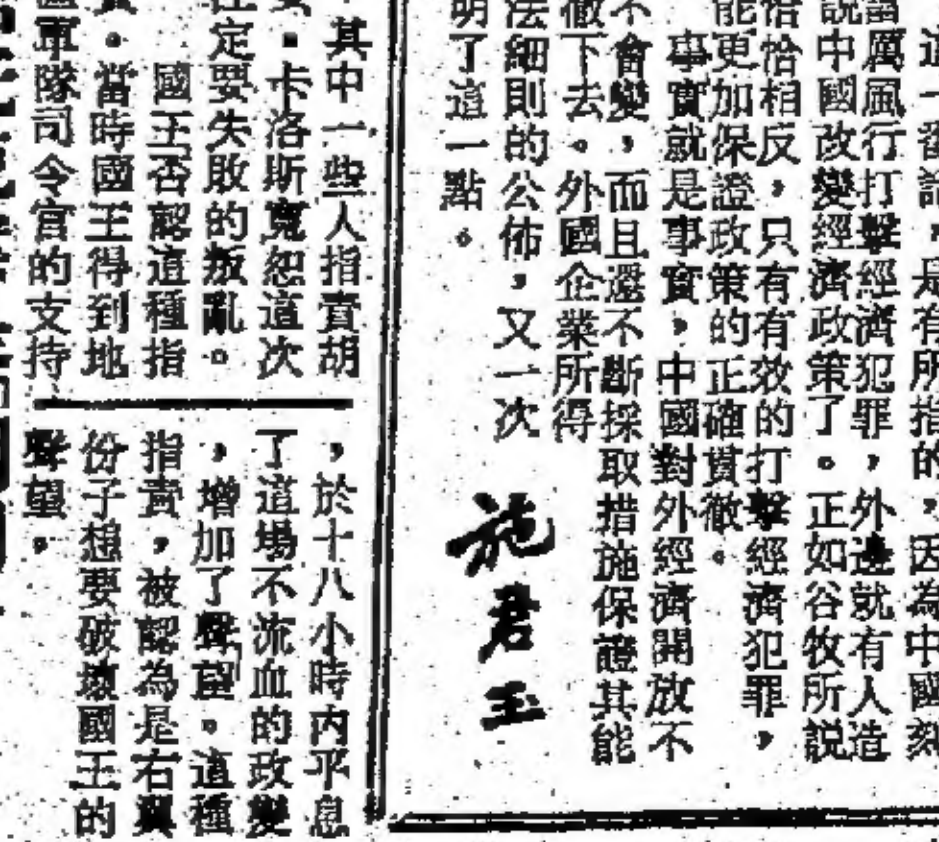 這一番話，是有所指的，因為中國刻
厲風行打擊經濟犯罪，外邊就有人造
說中國改變經濟政策了。正如谷牧所說
恰恰相反，只有有效的打擊經濟犯罪，
能更加保證政策的正確貫徹。
事實就是事實，中國對外經濟開放不
不會變，而且還不斷採取措施保證其能
徹下去。外國企業所得
法細則的公佈，又一次
明了這一點。
施君玉
其中一些人指責胡
·卡洛斯寬恕這次
定要失敗的叛亂。
國王否認這種指
責。當時國王得到地
區軍隊司令官的支持
，於十八小時內平息
了這場不流血的政變
，增加了聲望。這種
指責，被認為是右翼
份子想要破壞國王的
聲望。